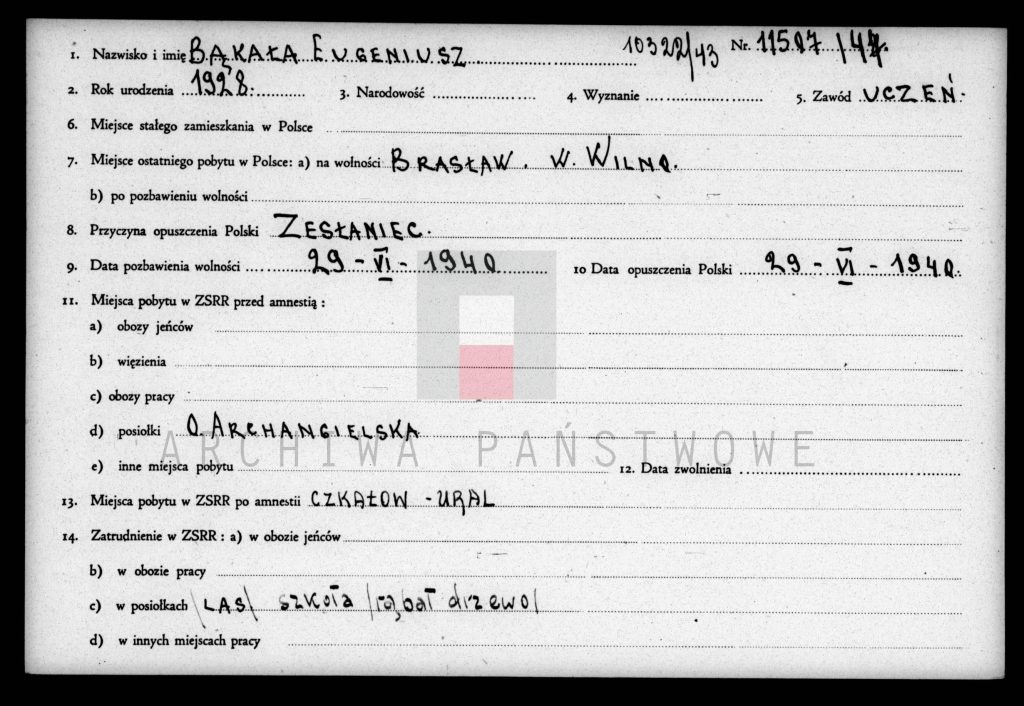 1. Nazwisko i imię BĄKAŁA EUGENIUSZ 10322/43 Nr. 11507 /44.
2. Rok urodzenia 1928. 3. Narodowość 4. Wyznanie 5. Zawód UCZEŃ.
6. Miejsce stałego zamieszkania w Polsce
7. Miejsce ostatniego pobytu w Polsce: a) na wolności BRASŁAW. W. WILNO.
b) po pozbawieniu wolności
8. Przyczyna opuszczenia Polski ZESŁANIEC.
9. Data pozbawienia wolności 29 - VI - 1940 10 Data opuszczenia Polski 29 - VI - 1940.
11. Miejsca pobytu w ZSRR przed amnestią :
a) obozy jeńców
b) więzienia
c) obozy pracy
d) posiołki O. ARCHANGIELSKA
ARCHIWA PAŃSTWOWE
e) inne miejsca pobytu 12. Data zwolnienia
13. Miejsca pobytu w ZSRR po amnestii CZKAŁOW - URAL
14. Zatrudnienie w ZSRR : a) w obozie jeńców
b) w obozie pracy
c) w posiołkach /LAS/ szkoła /rąbał drzewo/
d) w innych miejscach pracy